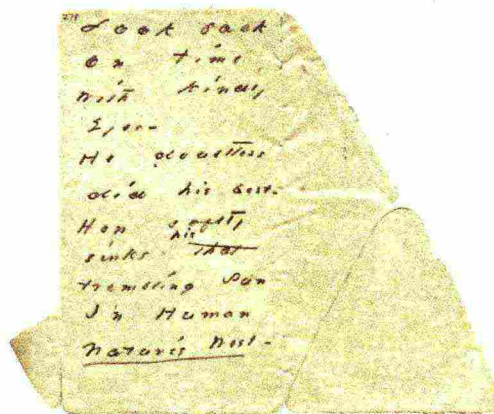 Look back
on time
with kindly
Eyes -
He doubtless
did his best -
How softly
his
sinks that
trembling Sun
In Human
Nature's West -